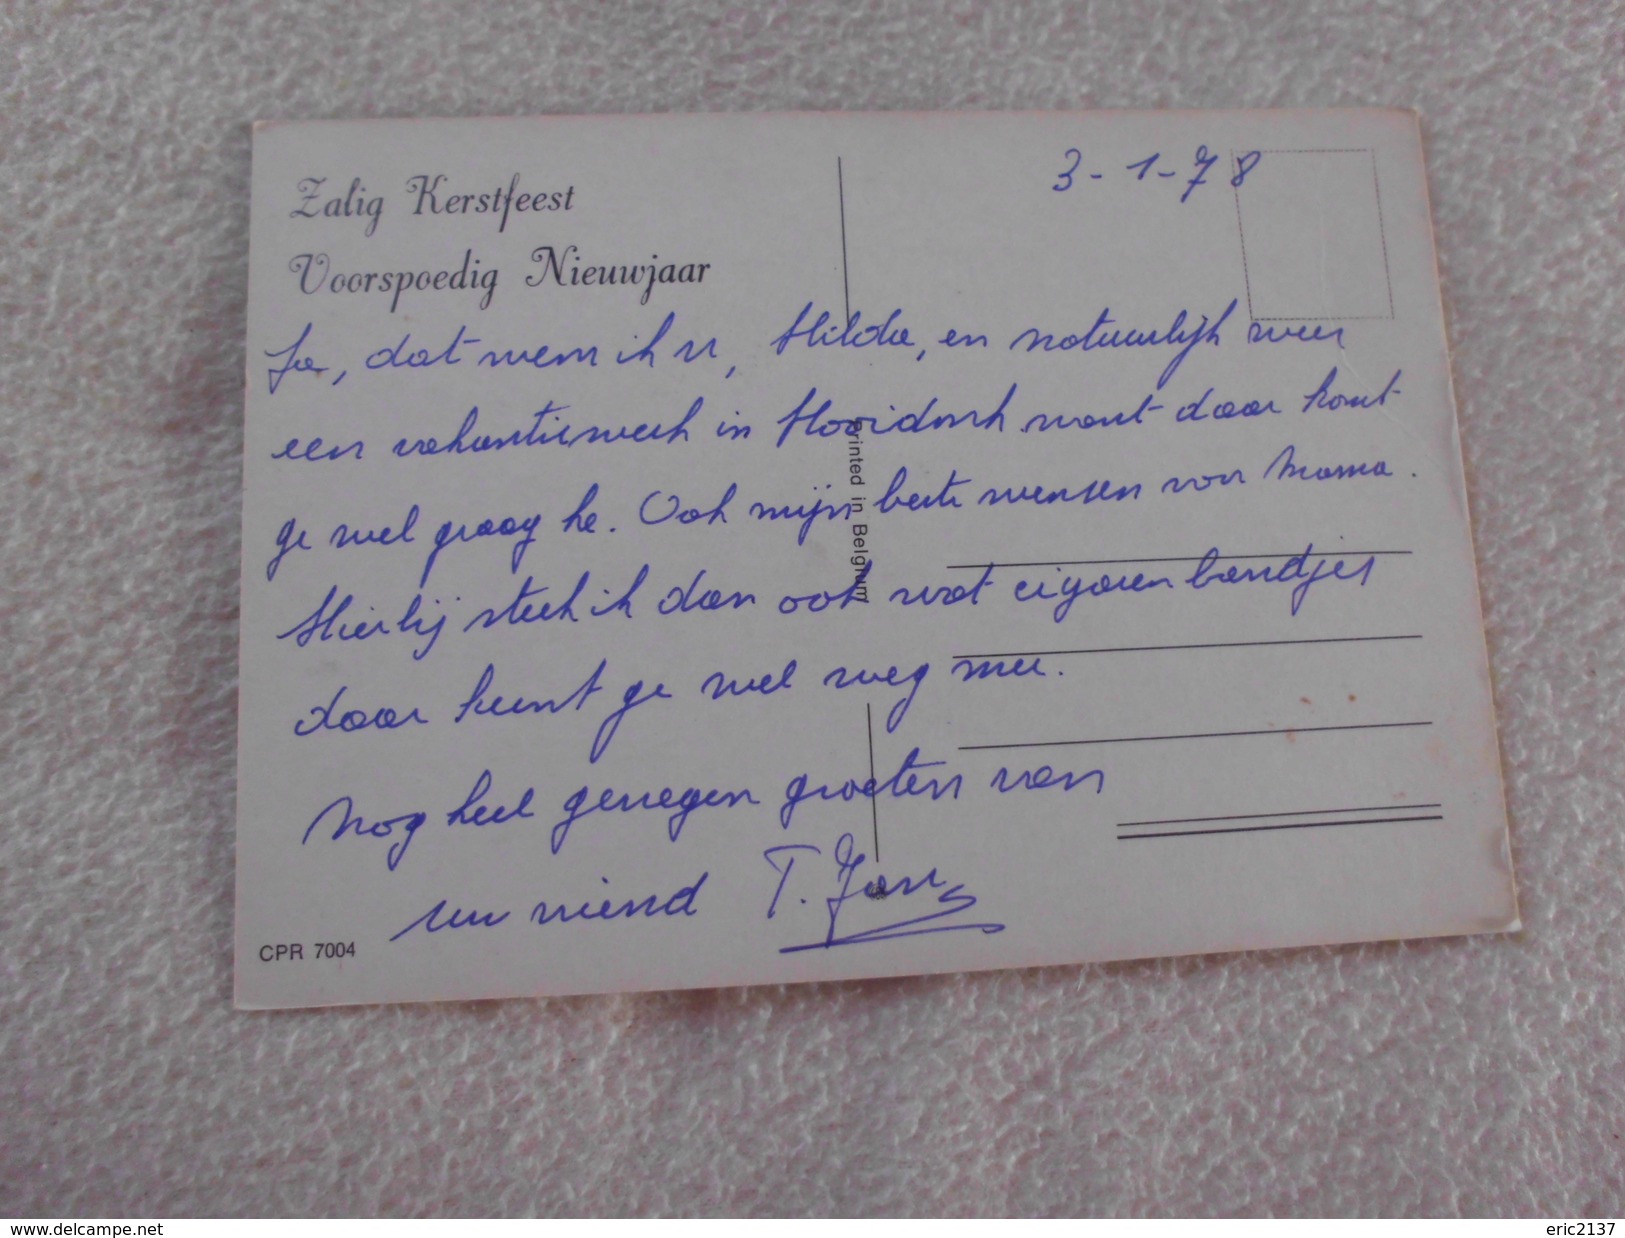 3-1-78
Zalig Kerstfeest
Voorspoedig Nieuwjaar
Ja, dat wens ik u, Hilda, en natuurlijk weer
een vakantieweek in Hooidonk want daar komt
ge wel graag he. Ook mijn beste wensen von Mama.
Hierbij steek ik dan ook wat cigarenbandjes
daar kunt ge wel weg mee.
Nog heel genegen groeten van
uw vriend T. Jan
Printed in Belgium
CPR 7004
www.delcampe.net
eric2137